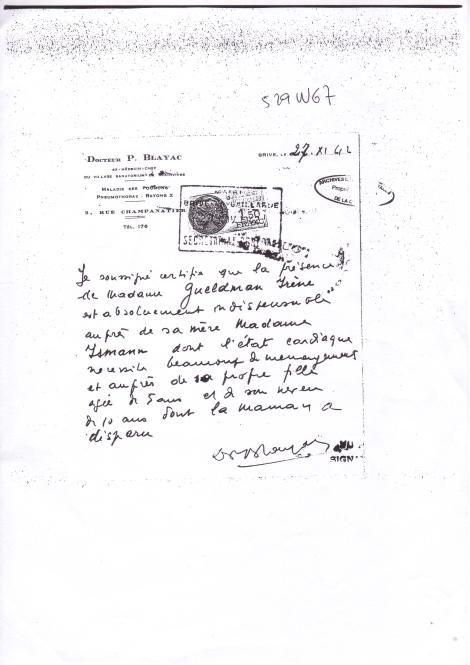 529W67
DOCTEUR P. BLAYAC
EX-MÉDECIN-CHEF
DU VILLAGE SANATORIUM DE
MALADIE DES POUMONS
PNEUMOTHORAX - RAYONS X
3, RUE CHAMPANATIER
TÉL. 176
BRIVE, LE 27. XI 42
ARCHIVES
Propri
DE LA C
MAIRIE
BRIVE GAILLARDE
SECRETARIAT
Je soussigné certifie que la présence
de Madame Gueldman Irène
est absolument indispensable
auprès de sa mère Madame
Ismann dont l'état cardiaque
nécessite beaucoup de menagement
et auprès de sa propre fille
agée de 5 ans et de son neveu
de 10 ans dont la maman a
disparu
SIGN